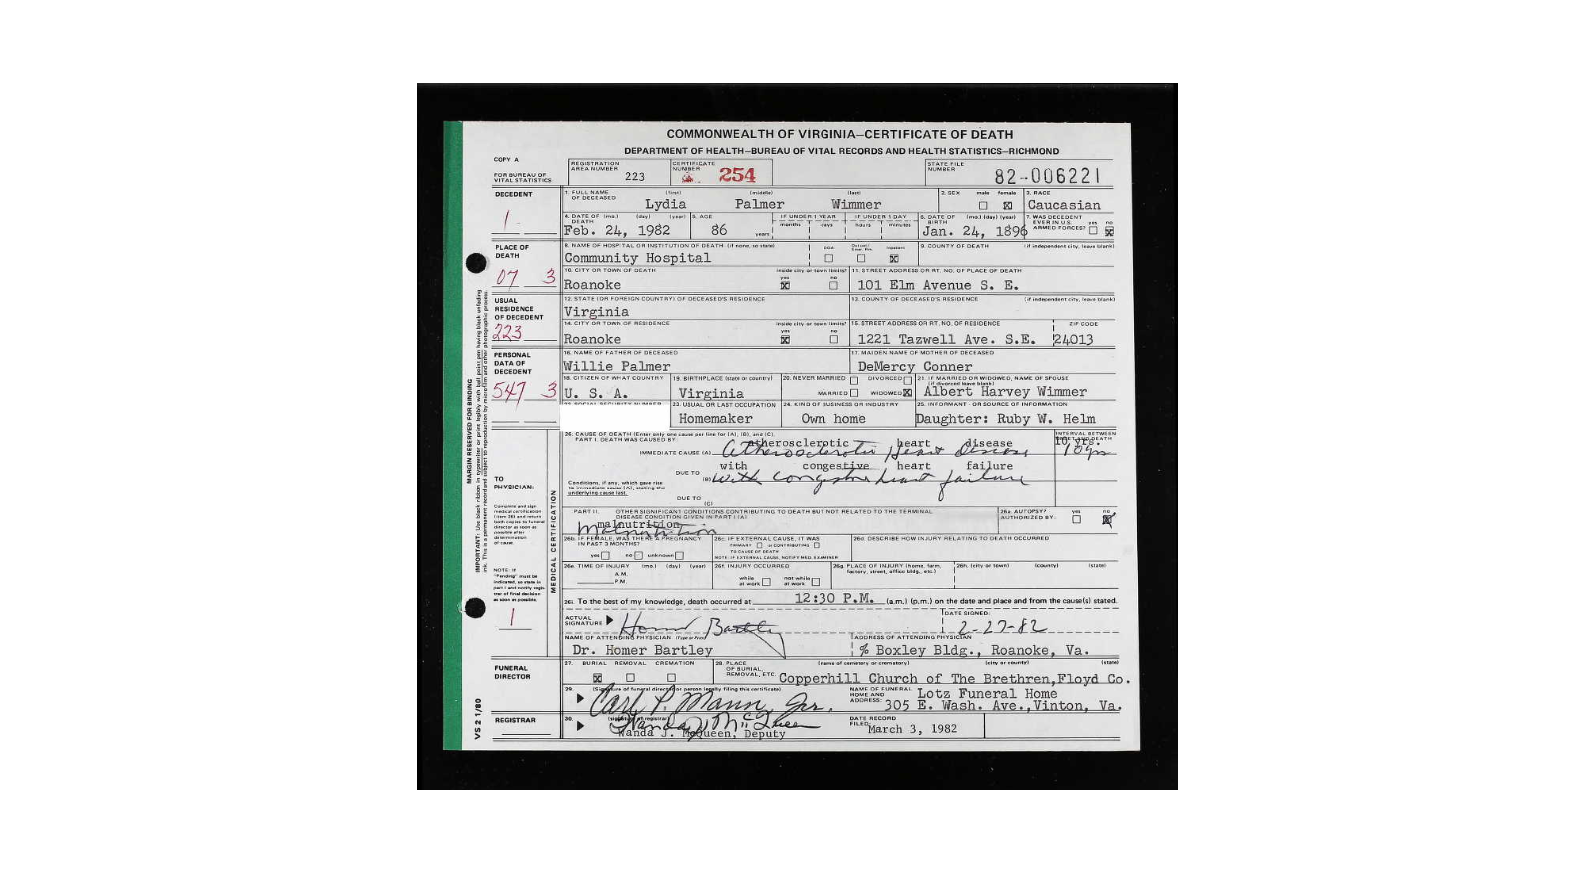 COMMONWEALTH OF VIRGINIA—CERTIFICATE OF DEATH
DEPARTMENT OF HEALTH—BUREAU OF VITAL RECORDS AND HEALTH STATISTICS—RICHMOND
COPY A
FOR BUREAU OF VITAL STATISTICS
REGISTRATION AREA NUMBER 223
CERTIFICATE NUMBER 254
STATE FILE NUMBER 82-006221
DECEDENT
1
1. FULL NAME OF DECEASED (first) (middle) (last)
Lydia Palmer Wimmer
2. SEX male female
3. RACE
Caucasian
4. DATE OF DEATH (mo.) (day) (year)
Feb. 24, 1982
5. AGE
86 years
IF UNDER 1 YEAR months days
IF UNDER 1 DAY hours minutes
6. DATE OF BIRTH (mo.) (day) (year)
Jan. 24, 1896
7. WAS DECEDENT EVER IN U.S. ARMED FORCES? yes no
PLACE OF DEATH
07 3
8. NAME OF HOSPITAL OR INSTITUTION OF DEATH (if none, so state)
Community Hospital
DOA Inpatient
9. COUNTY OF DEATH (if independent city, leave blank)
10. CITY OR TOWN OF DEATH inside city or town limits? yes no
Roanoke
11. STREET ADDRESS OR RT. NO. OF PLACE OF DEATH
101 Elm Avenue S. E.
USUAL RESIDENCE OF DECEDENT
223
12. STATE (OR FOREIGN COUNTRY) OF DECEASED'S RESIDENCE
Virginia
13. COUNTY OF DECEASED'S RESIDENCE (if independent city, leave blank)
14. CITY OR TOWN OF RESIDENCE inside city or town limits? yes no
Roanoke
15. STREET ADDRESS OR RT. NO. OF RESIDENCE ZIP CODE
1221 Tazwell Ave. S.E. 24013
PERSONAL DATA OF DECEDENT
547 3
16. NAME OF FATHER OF DECEASED
Willie Palmer
17. MAIDEN NAME OF MOTHER OF DECEASED
DeMercy Conner
18. CITIZEN OF WHAT COUNTRY
U. S. A.
19. BIRTHPLACE (state or country)
Virginia
20. NEVER MARRIED DIVORCED
MARRIED WIDOWED
21. IF MARRIED OR WIDOWED, NAME OF SPOUSE (if divorced leave blank)
Albert Harvey Wimmer
23. USUAL OR LAST OCCUPATION
Homemaker
24. KIND OF BUSINESS OR INDUSTRY
Own home
25. INFORMANT - OR SOURCE OF INFORMATION
Daughter: Ruby W. Helm
MARGIN RESERVED FOR BINDING
TO PHYSICIAN:
Complete and sign medical certification (item 26) and return both copies to funeral director as soon as possible after determination of cause.
NOTE: If "Pending" must be indicated, so state in part I and notify registrar of final decision as soon as possible.
1
MEDICAL CERTIFICATION
26. CAUSE OF DEATH (Enter only one cause per line for (A), (B), and (C).
PART I. DEATH WAS CAUSED BY:
INTERVAL BETWEEN ONSET AND DEATH
atherosclerotic heart disease 10 yrs.
IMMEDIATE CAUSE (A) Atherosclerotic Heart Disease 10 yrs
with congestive heart failure
DUE TO (B) with congestive heart failure
Conditions, if any, which gave rise to immediate cause (A), stating the underlying cause last.
DUE TO (C)
PART II. OTHER SIGNIFICANT CONDITIONS CONTRIBUTING TO DEATH BUT NOT RELATED TO THE TERMINAL DISEASE CONDITION GIVEN IN PART I (A)
malnutrition
Malnutrition
26a. AUTOPSY? AUTHORIZED BY: yes no
26b. IF FEMALE, WAS THERE A PREGNANCY IN PAST 3 MONTHS?
yes no unknown
26c. IF EXTERNAL CAUSE, IT WAS
PRIMARY or CONTRIBUTING
TO CAUSE OF DEATH
NOTE: IF EXTERNAL CAUSE, NOTIFY MED. EXAMINER
26d. DESCRIBE HOW INJURY RELATING TO DEATH OCCURRED
26e. TIME OF INJURY (mo.) (day) (year)
A.M.
P.M.
26f. INJURY OCCURRED
while at work not while at work
26g. PLACE OF INJURY (home, farm, factory, street, office bldg., etc.)
26h. (city or town) (county) (state)
26i. To the best of my knowledge, death occurred at 12:30 P.M. (a.m.) (p.m.) on the date and place and from the cause(s) stated.
ACTUAL SIGNATURE Homer Bartley
DATE SIGNED:
2-27-82
NAME OF ATTENDING PHYSICIAN (Type or Print)
Dr. Homer Bartley
ADDRESS OF ATTENDING PHYSICIAN
% Boxley Bldg., Roanoke, Va.
FUNERAL DIRECTOR
27. BURIAL REMOVAL CREMATION
28. PLACE OF BURIAL, REMOVAL, ETC. (name of cemetery or crematory) (city or county) (state)
Copperhill Church of The Brethren,Floyd Co.
29. (Signature of funeral director or person legally filing this certificate)
Carl P. Mann, Jr.
NAME OF FUNERAL HOME AND ADDRESS:
Lotz Funeral Home
305 E. Wash. Ave.,Vinton, Va.
REGISTRAR
30. (signature of registrar)
Wanda J. McQueen
Wanda J. McQueen, Deputy
DATE RECORD FILED:
March 3, 1982
VS 2 1/80